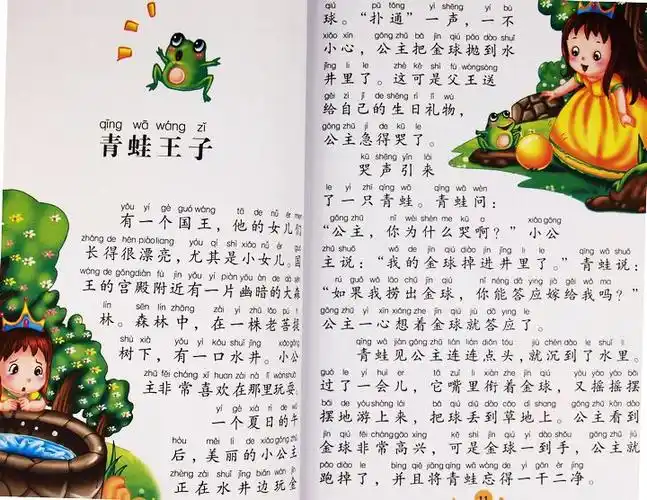 qīng wā wáng zǐ
青蛙王子
yǒu yí gè guó wáng tā de nǚ ér men
有一个国王，他的女儿们
zhǎng de hěn piàoliang yóu qí shì xiǎo nǚ ér guó
长得很漂亮，尤其是小女儿。国
wáng de gōngdiàn fù jìn yǒu yí piàn yōu àn de dà sēn
王的宫殿附近有一片幽暗的大森
lín sēn lín zhōng zài yì zhū lǎo pú tí
林。森林中，在一株老菩提
shù xià yǒu yì kǒu shuǐ jǐng xiǎo gōng
树下，有一口水井。小公
zhǔ fēi cháng xǐ huan zài nà lǐ wánshuǎ
主非常喜欢在那里玩耍。
yí gè xià rì de wǔ
一个夏日的午
hòu měi lì de xiǎo gōng zhǔ
后，美丽的小公主
zhèng zài shuǐ jǐng biān wán jīn
正在水井边玩金
qiú pū tōng yì shēng yí bù
球。“扑通”一声，一不
xiǎo xīn gōng zhǔ bǎ jīn qiú pāo dào shuǐ
小心，公主把金球抛到水
jǐng lǐ le zhè kě shì fù wángsòng
井里了。这可是父王送
gěi zì jǐ de shēng rì lǐ wù
给自己的生日礼物，
gōng zhǔ jí de kū le
公主急得哭了。
kū shēng yǐn lái
哭声引来
le yì zhī qīng wā qīng wā wèn
了一只青蛙。青蛙问：
gōng zhǔ nǐ wèi shén me kū a xiǎo gōng
“公主，你为什么哭啊？”小公
zhǔ shuō wǒ de jīn qiú diào jìn jǐng lǐ le qīng wā shuō
主说：“我的金球掉进井里了。”青蛙说：
rú guǒ wǒ lāo chū jīn qiú nǐ néng dā yìng jià gěi wǒ ma
“如果我捞出金球，你能答应嫁给我吗？”
gōng zhǔ yì xīn xiǎng zhe jīn qiú jiù dā yìng le
公主一心想着金球就答应了。
qīng wā jiàn gōng zhǔ lián lián diǎn tóu jiù chén dào le shuǐ lǐ
青蛙见公主连连点头，就沉到了水里。
guò le yí huì er tā zuǐ lǐ xián zhe jīn qiú yòu yáo yáo bǎi
过了一会儿，它嘴里衔着金球，又摇摇摆
bǎi de yóushàng lái bǎ qiú diū dào cǎo dì shàng gōng zhǔ kàn dào
摆地游上来，把球丢到草地上。公主看到
jīn qiú fēi cháng gāo xìng kě shì jīn qiú yí dào shǒu gōng zhǔ jiù
金球非常高兴，可是金球一到手，公主就
pǎo diào le bìng qiě jiāng qīng wā wàng de yì gān èr jìng
跑掉了，并且将青蛙忘得一干二净。
11